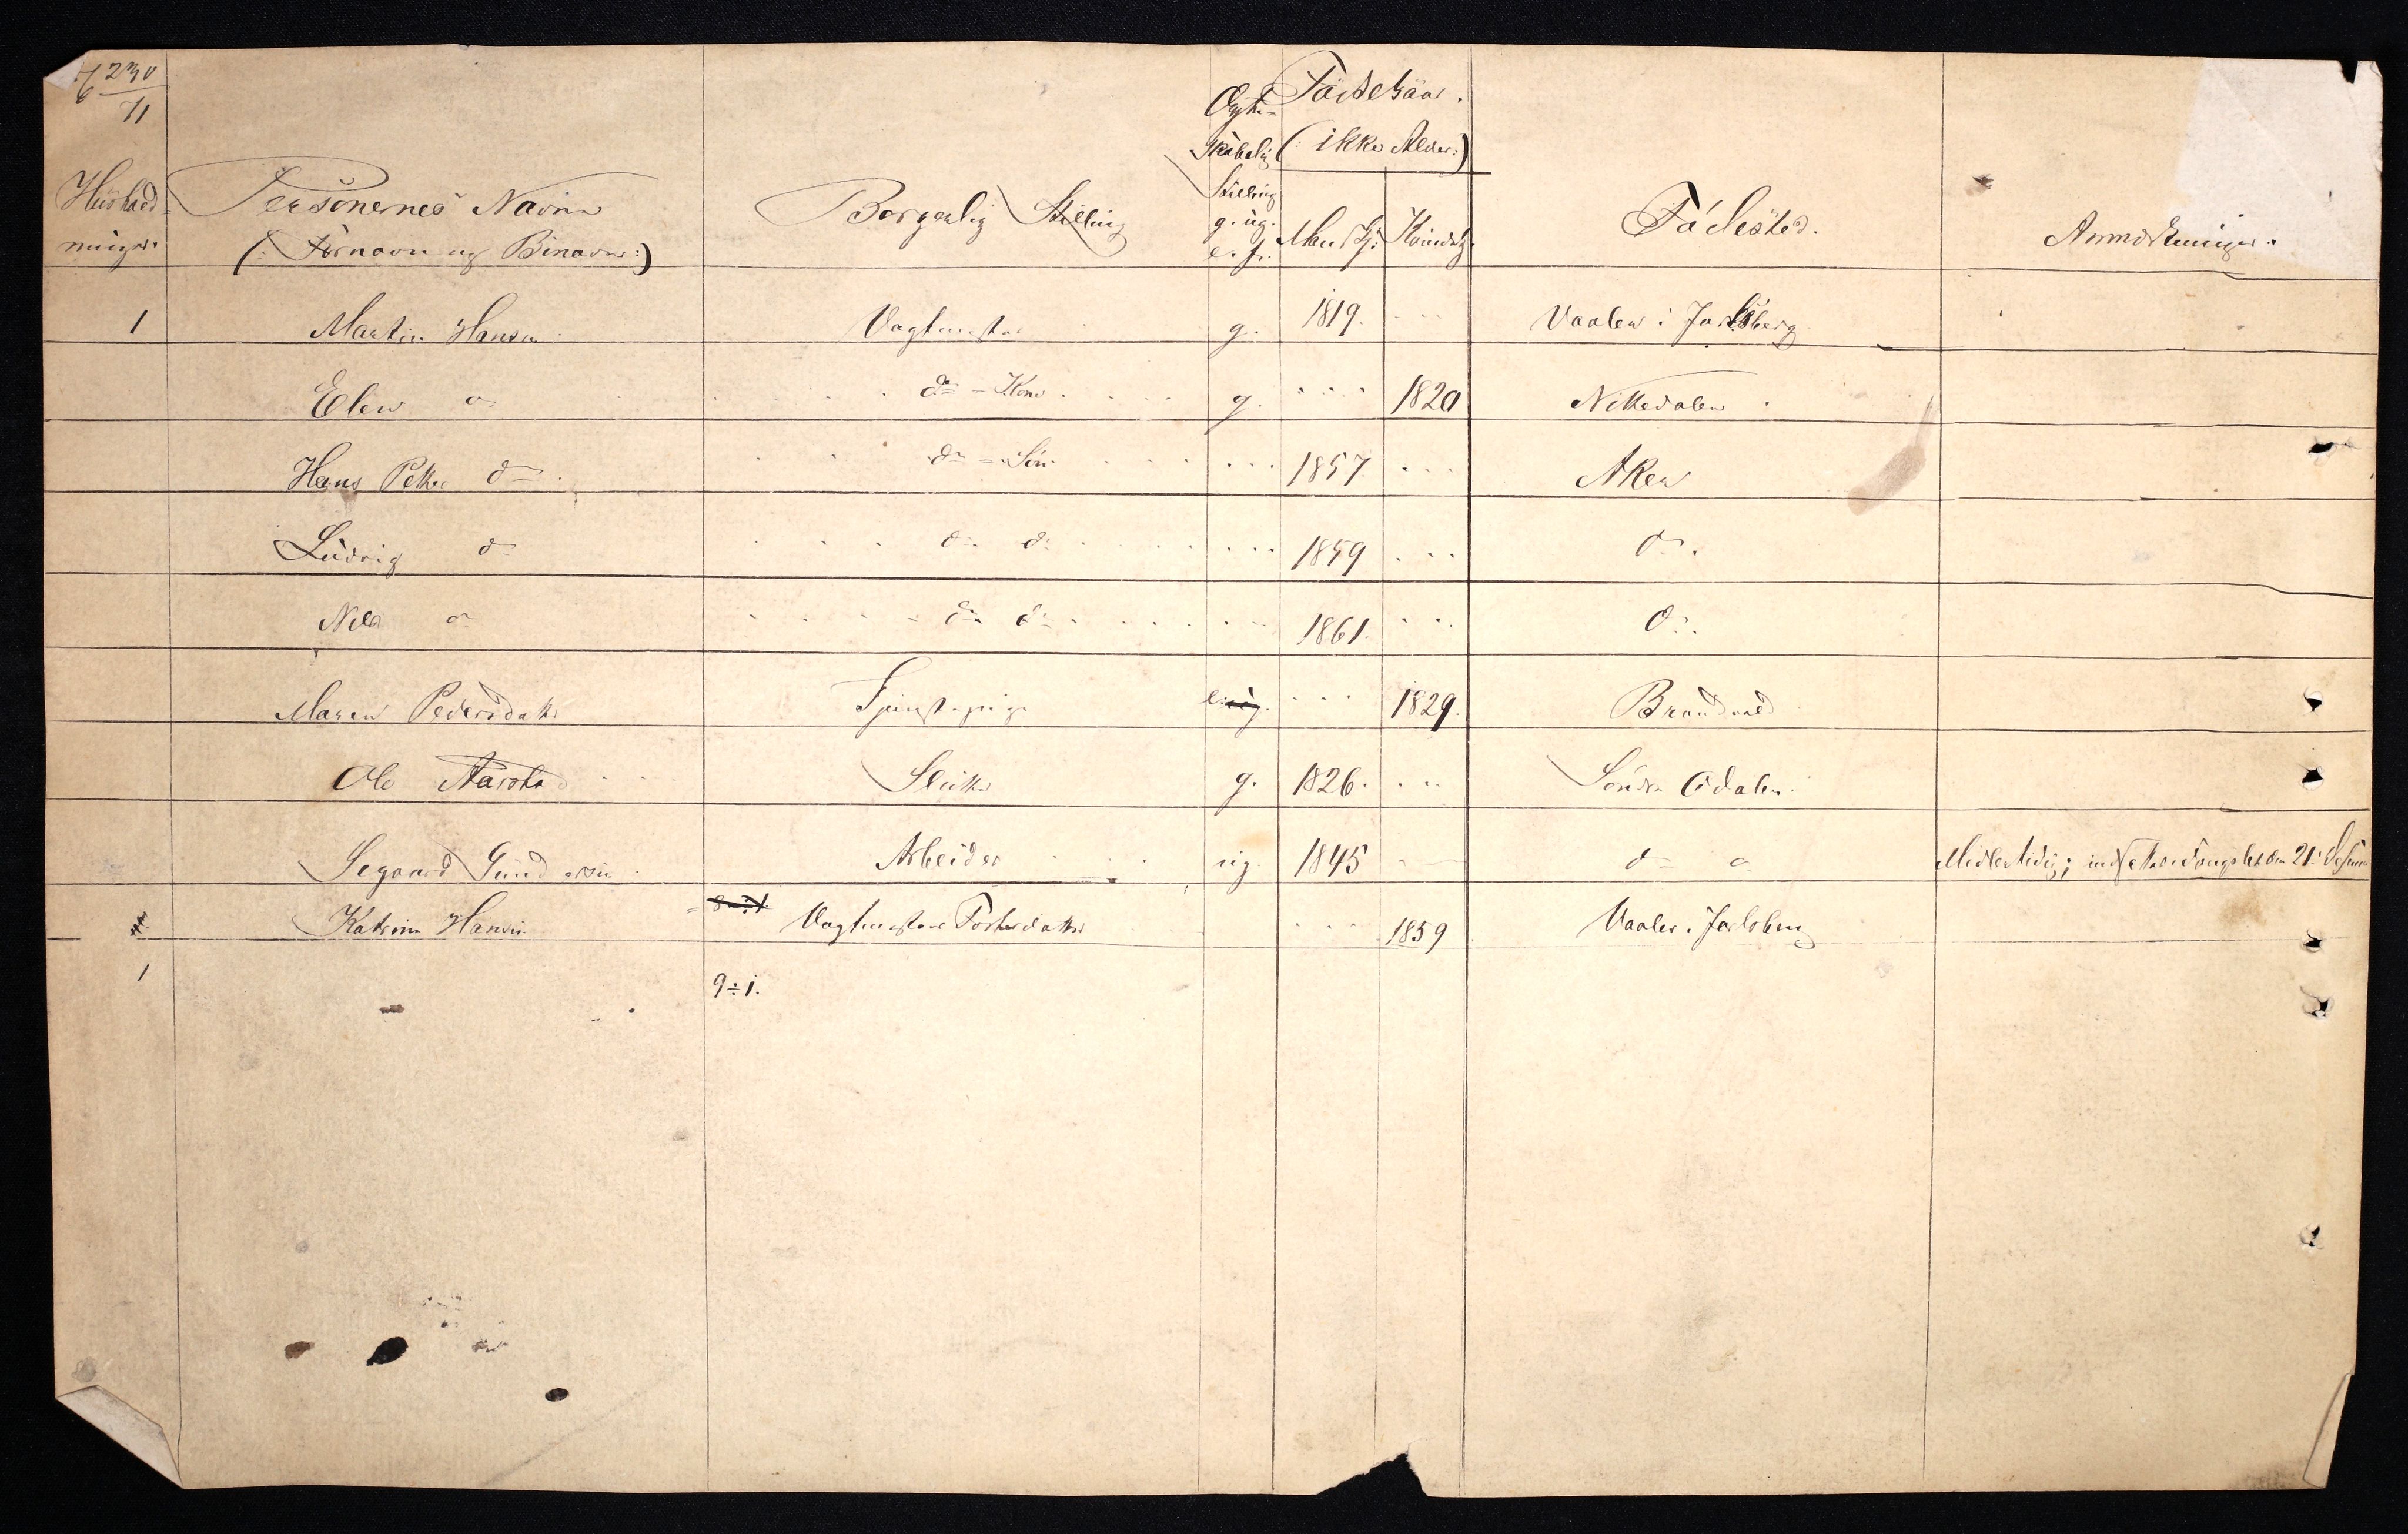 230
71
Husholdninger. Personernes Navne (: Fornavn og Binavn :) Borgerlig Stilling Ægteskabelig Stilling g. ug. e. f. Födselsaar. (: ikke Alder :) Mandkj: Kvindekj. Födested. Anmærkninger.
1 Martin Hansen Vagtmester g. 1819. Vaaler i Jarlsberg
Elen do do - Kone g. 1820 Nittedalen
Hans Petter do do - Sön 1857. Aker
Ludvig do do do 1859 do.
Nils do do do 1861. do.
Maren Pedersdatter Tjenestepige ug. 1829. Brandvold
Ole Aarstad Slutter g. 1826. Söndre Odalen.
Segaard Gundersen Arbeider ug. 1845 do do Midlertidig; indsat
Katrine Hansen Vagtmesters Fosterdatter 1859 Vaaler i Jarlsberg
1 9÷1.